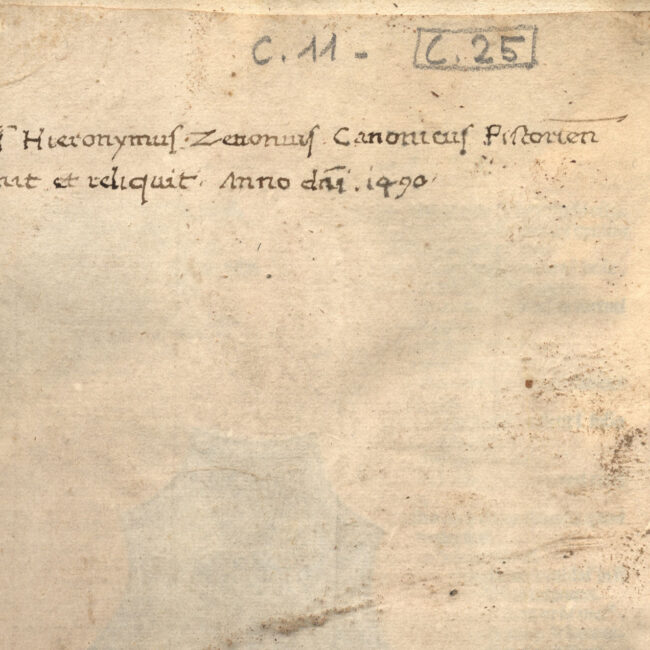 C. 11 - C. 25
Hieronymus. Zenonius. Canonicus. Pistorien̄
et reliquit. Anno dn̄i. 1490